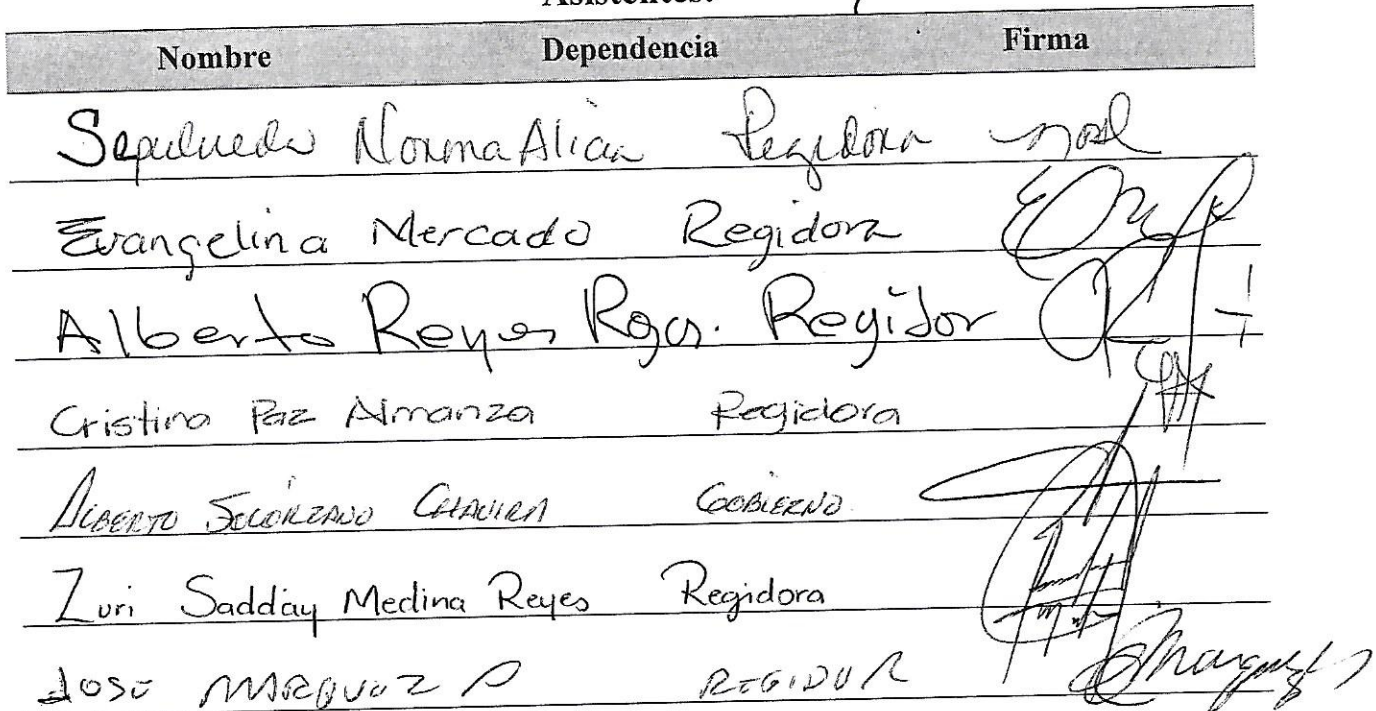 Asistentes:
Nombre Dependencia Firma
Sepulveda Norma Alicia Regidora
Evangelina Mercado Regidora
Alberto Reyes Rojas. Regidor
Cristina Paz Almanza Regidora
ALBERTO SOLÓRZANO CHAVIRA GOBIERNO
Zuri Sadday Medina Reyes Regidora
JOSE MARQUEZ P REGIDOR